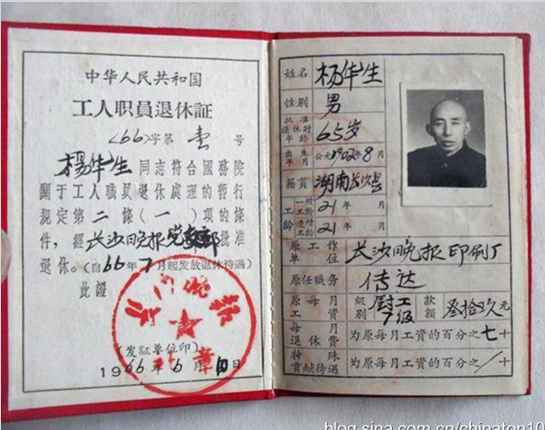 中华人民共和国
工人职员退休証
(66)字第 号
杨华生同志符合國務院
關于工人職員退休處理的暫行
規定第二條(一)項的條
件，經长沙晚报党支部批准
退休。(自66年7月起发放退休待遇)
此證
长沙晚报
章
(发証单位印)
1966年6月10日
姓名 杨华生
性别 男
65岁
出生年月 公元1902年8月
籍貫 湖南长沙县
工龄 21年 月
21年 月
原工作单位 长沙晚报印刷厂
原任職务 传达
原每月工資 級別 7級 款額 叁拾玖元
每月退休費 为原每月工資的百分之七十
特殊貢献待遇 为原每月工資的百分之/十
blog.sina.com.cn/chinaton10